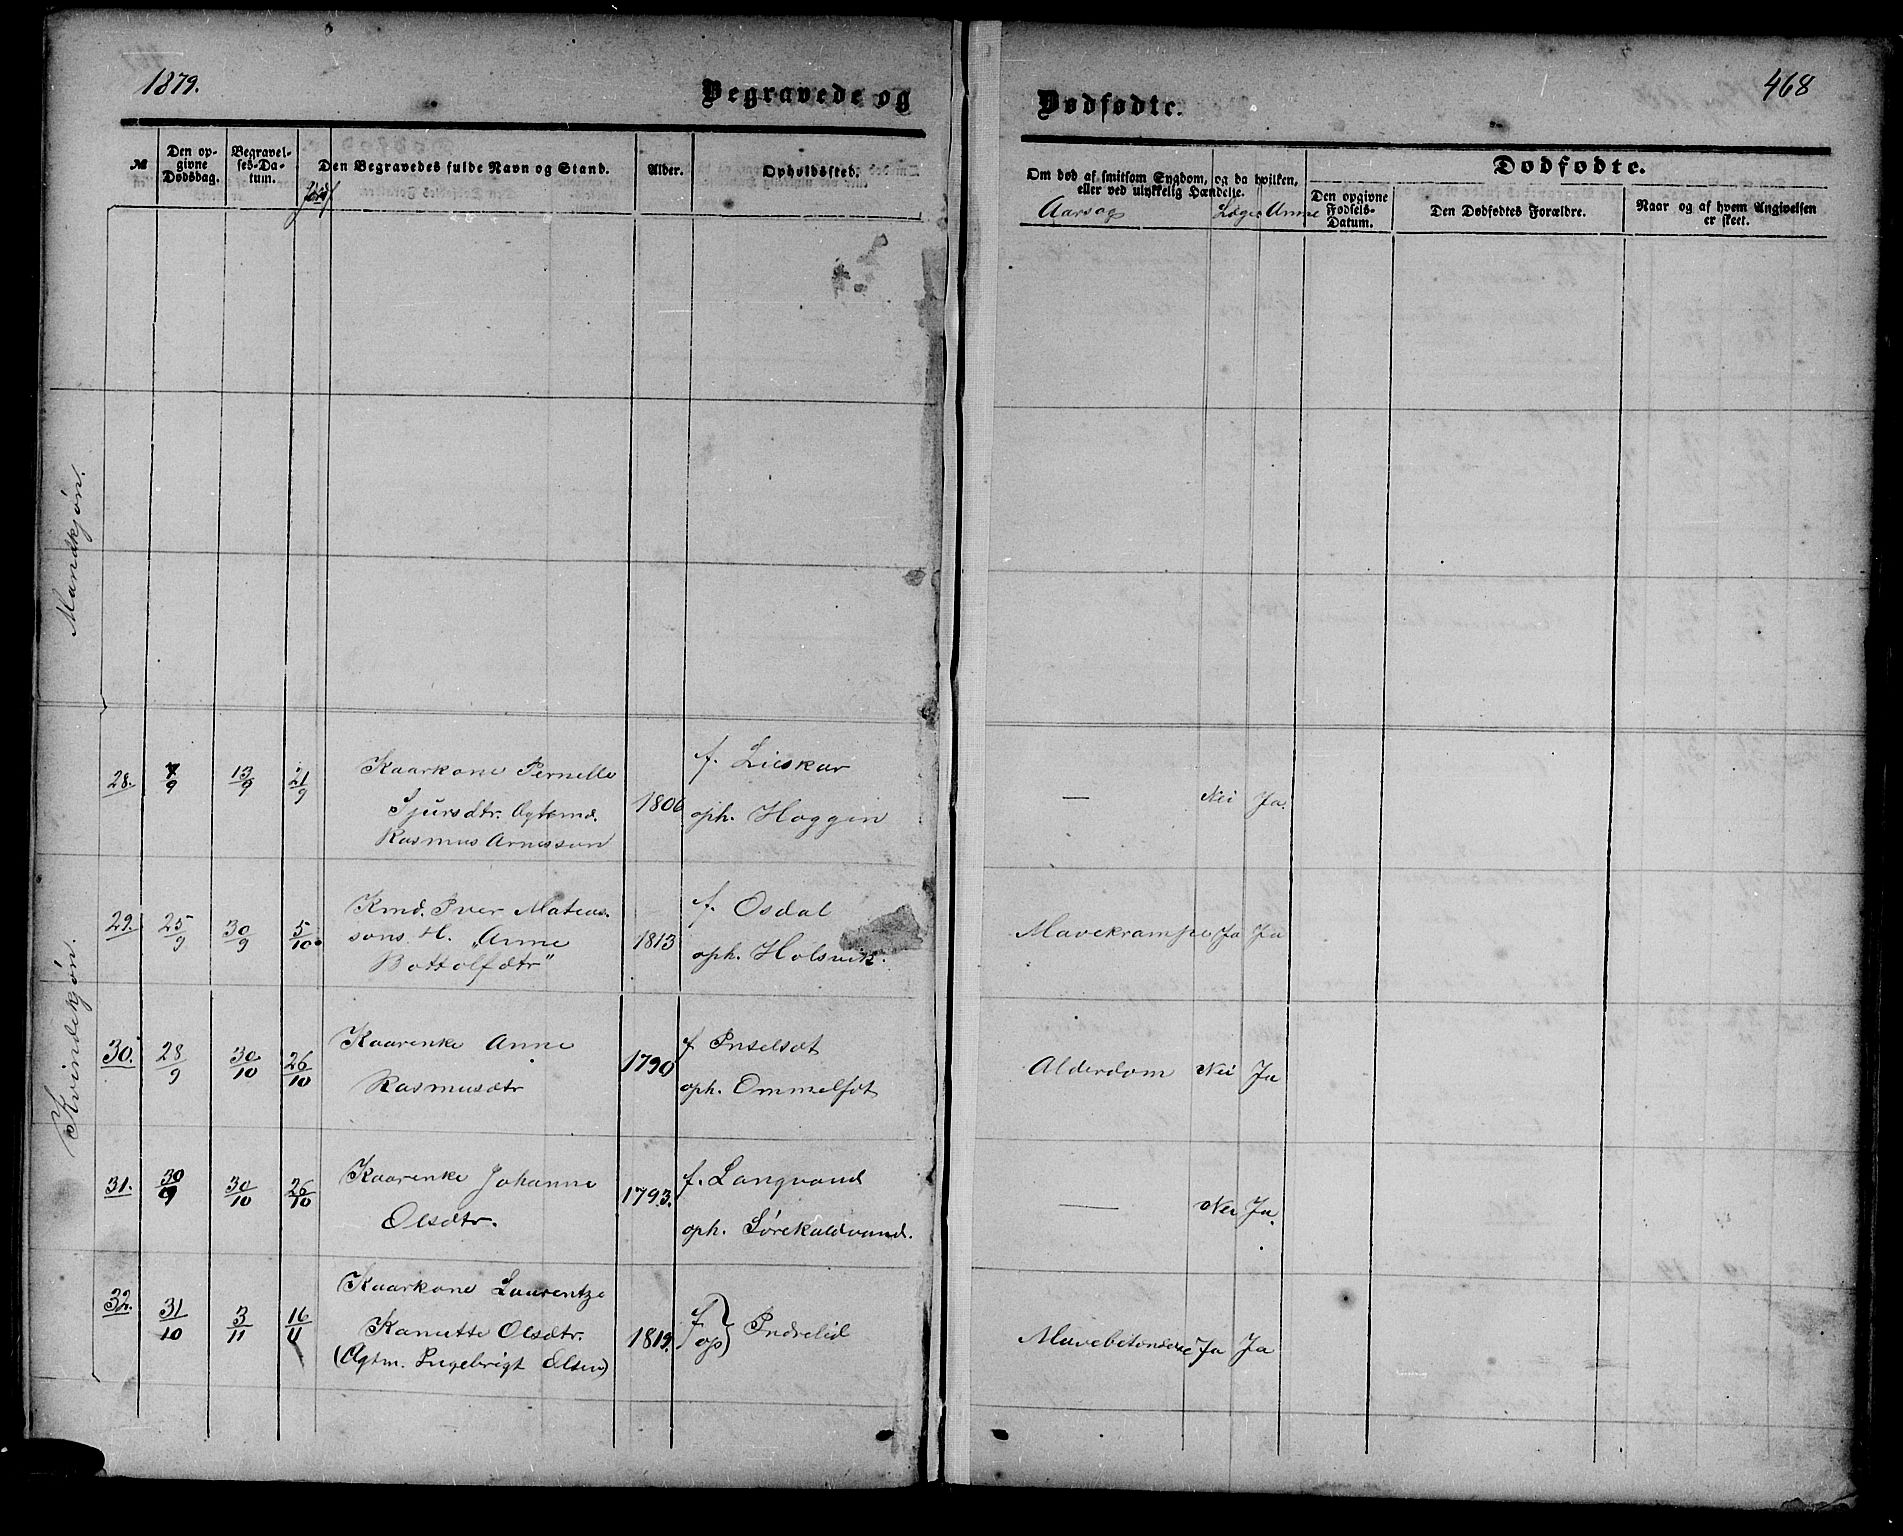 1879.
Begravede og
Dødfødte.
468
№
Den opgivne Dødsdag.
Begravelses-Datum.
Jordf
Den Begravedes fulde Navn og Stand.
Alder.
Opholdssted.
Om død af smitsom Sygdom, og da hvilken,
eller ved ulykkelig Hændelse.
Aarsag
Læge
Anme
Dødfødte.
Den opgivne Fødsels-Datum.
Den Dødfødtes Forældre.
Naar og af hvem Angivelsen er skeet.
Mandkjøn.
Kvindekjøn.
28. 7/9 13/9 21/9 Kaarkone Pernelle 1806 f. Lieskar
Sjursdtr. Ogtemd. oph. Haggin — Nei Ja.
Rasmus Arnesson
29. 25/9 30/9 5/10. Kmd. Iver Mateus- 1813 f. Osdal
sons H. Anne oph. Holsvik. Mavekrampe Ja Ja
Bottolfdtr"
30. 28/9 30/10 26/10 Kaarenke Anne 1790 f. Inselsæt
Rasmusdtr oph. Ommelfot Alderdom Nei Ja
31. 30/9 30/10 26/10 Kaarenke Johanne 1793. f. Langvand
Olsdtr. oph. Sørekaldvand. — Nei Ja.
32. 31/10 3/11 16/11 Kaarkone Laurentze
Kanutte Olsdtr. 1819. f op } Indrelid Mavebetændelse Ja Ja
(Ogtm. Ingebrigt Elsen)